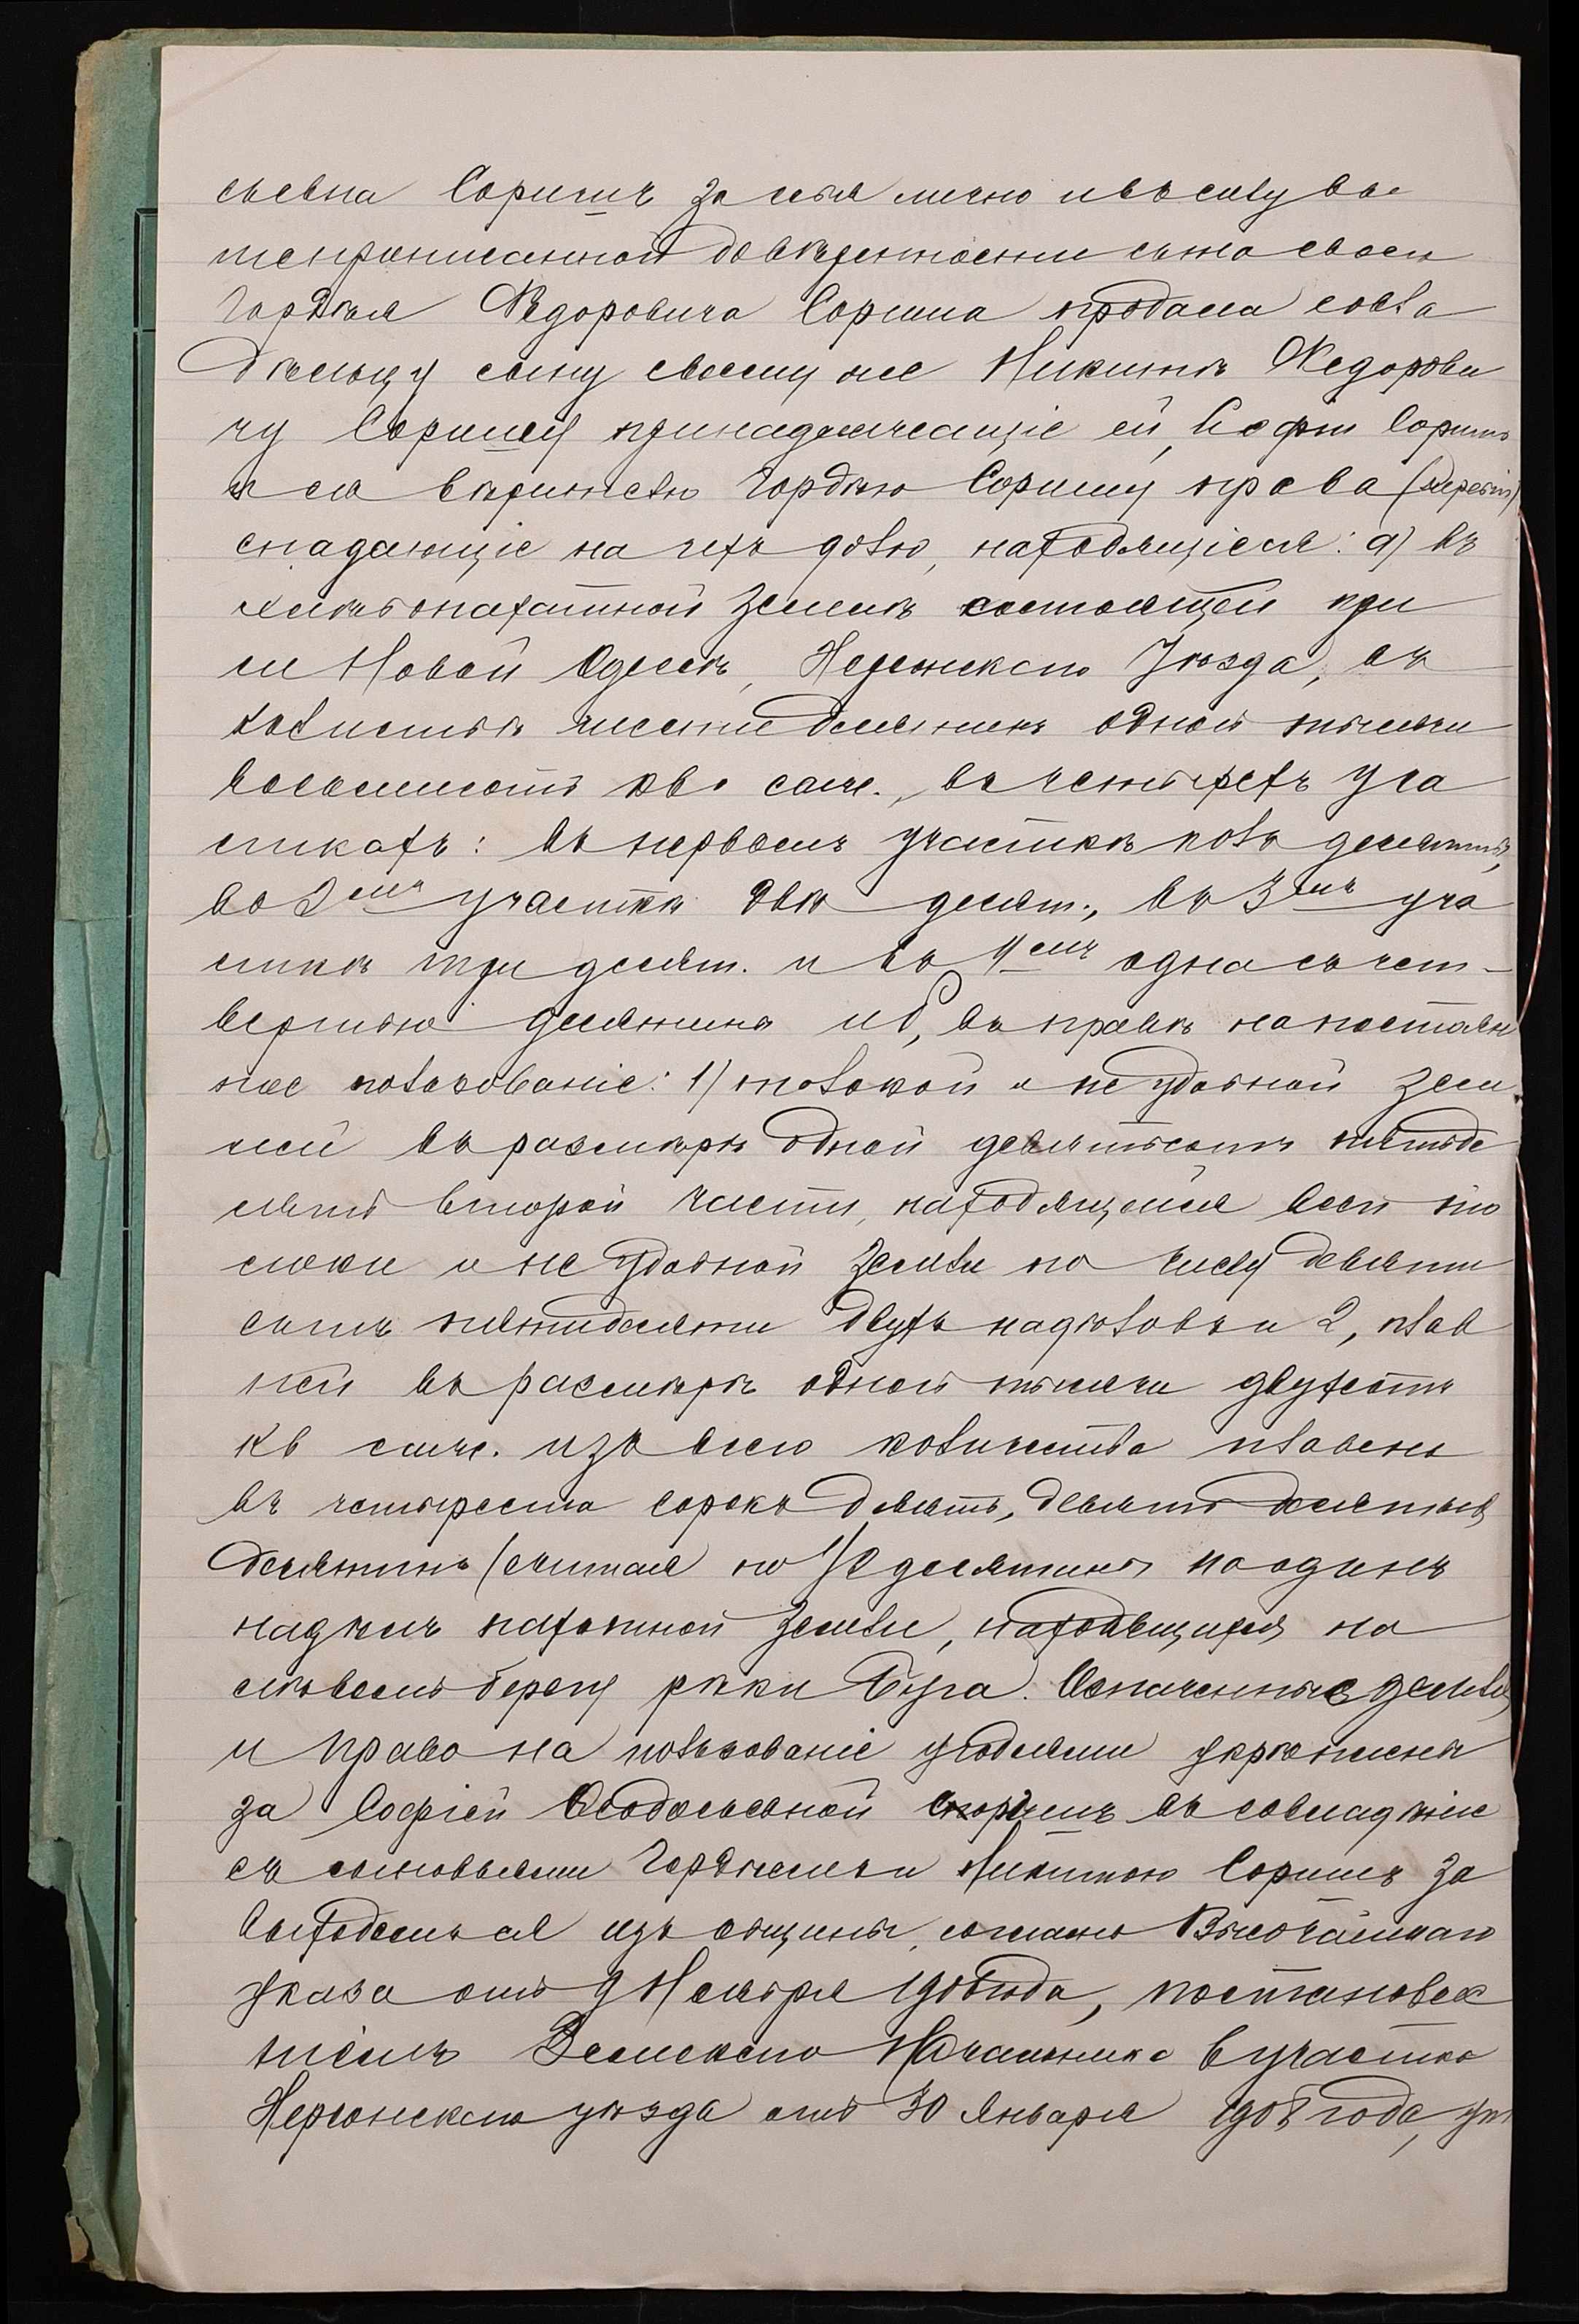 сьевна Соришъ за себя лично и въ силу вы-
шепрописанной довѣренности сына своего
Гордѣя Ѳедоровича Сориша продала совла
дѣльцу сыну своему же Никитѣ Ѳедорови
чу Соришу принадлежащіе ей, Софіи Соришъ
и ея вѣрителю Гордѣю Соришу права
спадающіе на ихъ долю, находящіеся: а) въ
пахатной землѣ состоящей при
м Новой Одессѣ, Херсонскаго Уѣзда, въ
количествѣ шести десятинъ одной тысячи
восемьсотъ кв. саж., въ четырехъ уча
сткахъ: въ первомъ участкѣ полъ десятины,
во 2мъ участкѣ двѣ десят., въ 3мъ уча
сткѣ три десят. и въ 4омъ одна съ чет-
вертью десятина и б, въ правѣ на постоян
ное пользованіе: 1) толокой и неудобной зем
лей въ размѣрѣ одной девятьсотъ пятьде
сятъ второй части, находящейся всей то
локи и неудобной земли по числу девяти
сотъ пятидесяти двухъ надѣловъ и 2, плав
ней въ размѣрѣ одной тысячи двухсотъ
кв саж. изъ всего количества плавень
въ четыреста сорокъ девять, девять десятыхъ
десятинъ (считая по 1/2 десятины на одинъ
надѣлъ пахотной земли, находящихся на
лѣвомъ берегу рѣки Буга. Означенные земля
и право на пользованіе угодьями укрѣплены
за Софіей Соришъ въ совладѣніе
съ сыновьями Гордѣемъ и Никитою Соришъ за
выходомъ ея изъ общины, согласно Высочайшаго
указа отъ 9 Ноября 1906 года, постановле
ніемъ Земскаго Начальника 6 участка
Херсонскаго уѣзда отъ 30 Января 1908 года, ут